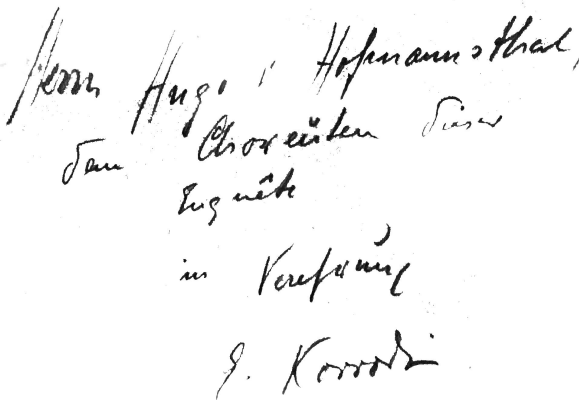 Herrn Hugo v Hofmannsthal,
dem Choreuten dieser
Enquête
in Verehrung
E. Korrodi